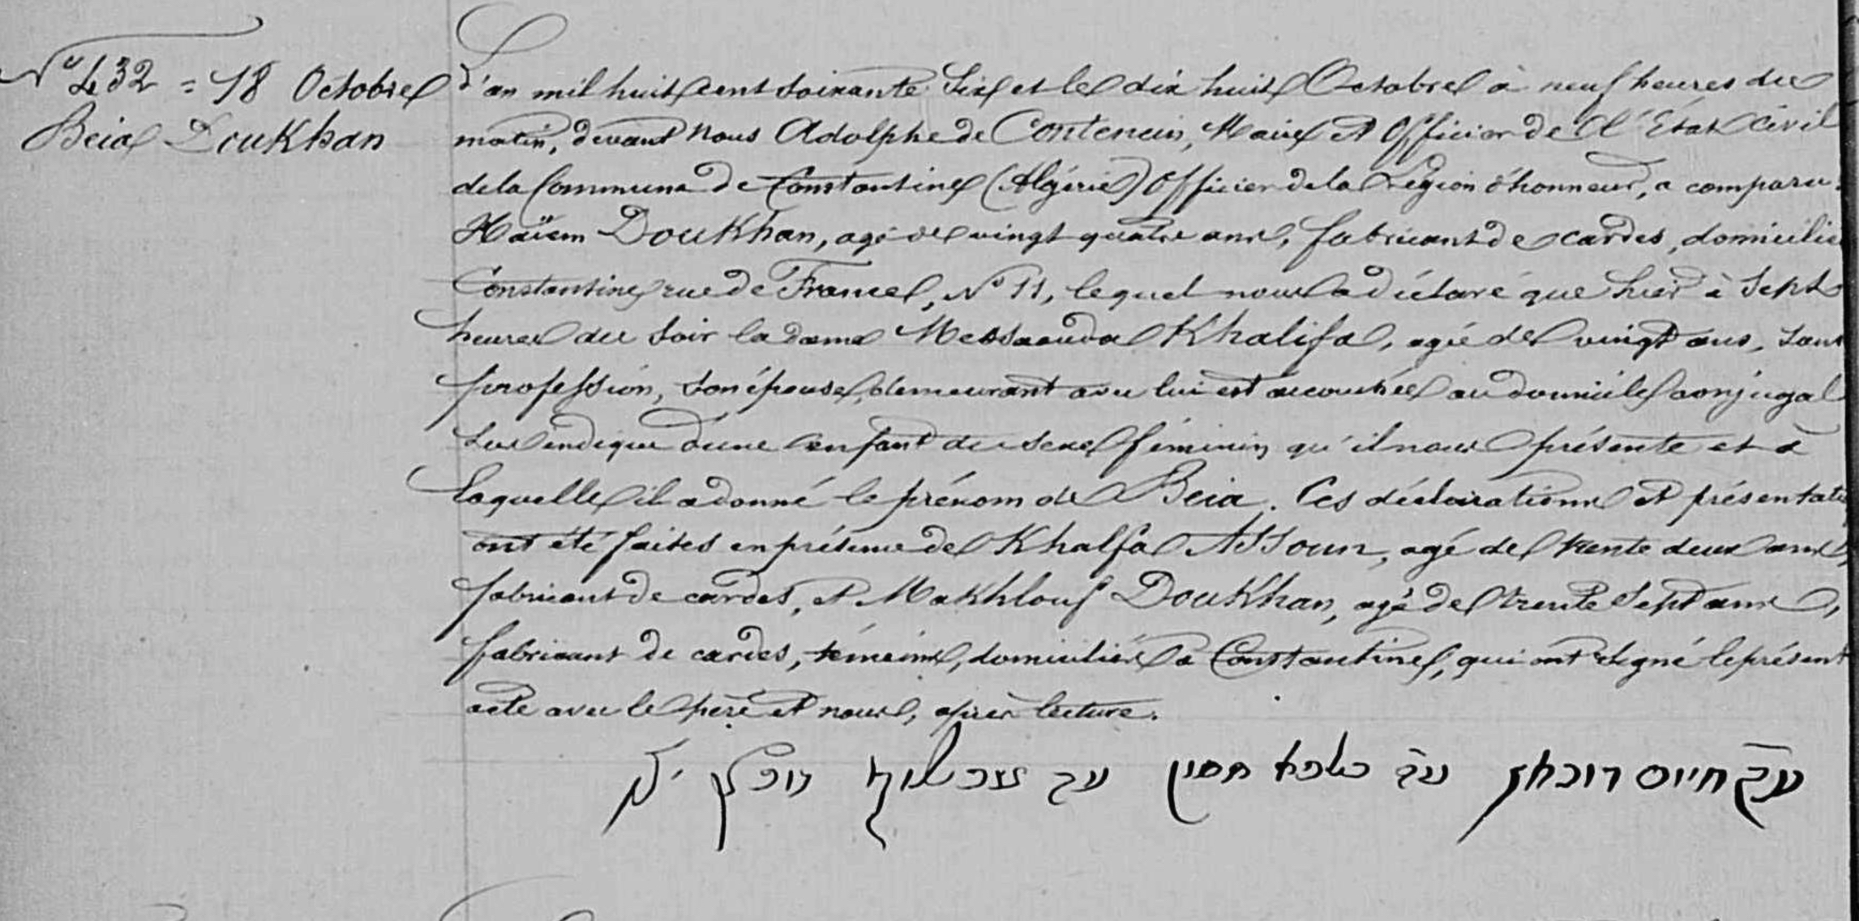 N° 432 = 18 Octobre
Beia Doukhan
L'an mil huit cent soixante six et le dix huit Octobre à neuf heures du
matin, devant Nous Adolphe de Contencin, Maire et Officier de l'État civil
de la Commune de Constantine (Algérie) Officier de la Légion d'honneur, a comparu
Haïem Doukhan, agé de vingt quatre ans, fabricant de cardes, domicilié
Constantine rue de France, N° 11, lequel nous a déclaré que hier à sept
heures du soir la dame Messaouda Khalifa, agée de vingt ans, sans
profession, son épouse, demeurant avec lui est accouchée au domicile conjugal
sus indiqué d'une enfant du sexe féminin qu'il nous présente et à
laquelle il a donné le prénom de Beia. Ces déclarations et présentati
ont été faites en présence de Khalfa Assoun, agé de trente deux ans,
fabricant de cardes, et Makhlouf Doukhan, agé de trente sept ans,
fabricant de cardes, témoins, domiciliés à Constantine, qui ont signé le présent
acte avec le père et nous, après lecture.
חיים דוכאן כלפא חסון מכלוף דוכאן